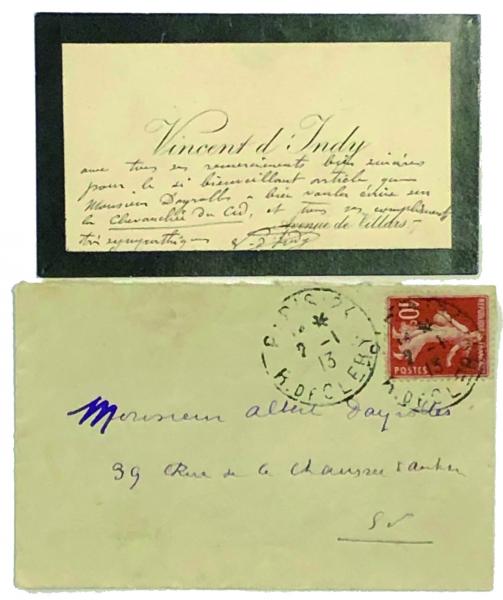 Vincent d'Indy
avec tous ses remerciements bien sincères
pour le si bienveillant article que
Monsieur Dayrolles a bien voulu écrire sur
la Chevauchée du Cid, et tous ses compliments
très sympathiques V. d'Indy
Avenue de Villars
PARIS
2-1
13
R. DE CLERY
10c
POSTES
2-1
13
R. DE CLERY
Monsieur Albert Dayrolles
39 Rue de la Chaussée d'Antin